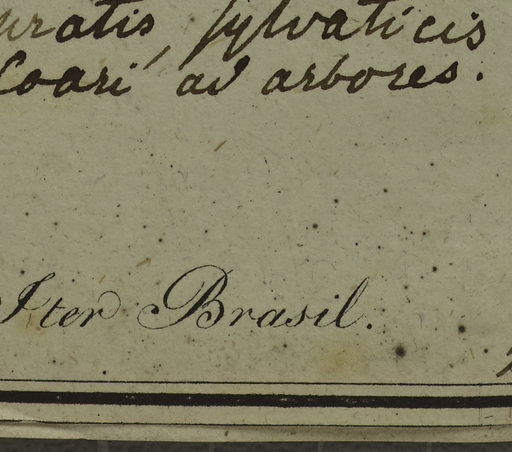 uratis, sylvaticis
Coari ad arbores.
Iter Brasil.